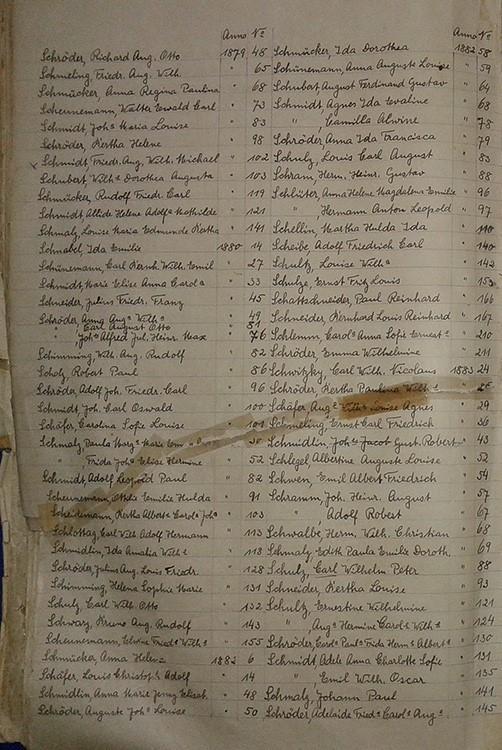 Anno No
Schröder, Richard Aug. Otto 1879 48
Schmeling, Friedr. Aug. Wilh. " 65
Schmücker, Anna Regina Paulina " 68
Scheunemann, Walter Ewald Carl " 73
Schmidt, Johs Maria Louise " 83
Schröder, Bertha Helene " 98
Schmidt, Friedr. Aug. Wilh. Michael " 102
Schubert, Wilhe Dorothea Augusta " 103
Schmücker, Rudolf Friedr. Carl " 119
Schmidt, Helene Mathilde " 121
Schmalz, Louise Maria Edmunde Bertha " 141
Schnabel, Ida Emilie 1880 14
Schünemann, Carl Bernh. Wilh. Emil " 27
Schmidt, Marie Elise Anna Carola " 33
Schneider, Julius Friedr. Franz " 45
Schröder, Anna Auga Wilha " 49
" Carl August Otto " 51
" Johs Alfred Jul. Heinr. Max " 76
Schimming, Wilh. Aug. Rudolf " 82
Scholz, Robert Paul " 86
Schröder, Adolf Joh. Friedr. Carl " 96
Schmidt, Joh. Carl Oswald " 100
Schäfer, Carolina Sofie Louise " 101
Schmalz, Paula
" Frida Johe Elise Hermine " 52
Schmidt, Adolf Leopold Paul " 82
Scheunemann, Emilie Hulda " 91
Scheidemann, Bertha Alberte Carole Johe " 103
Schlottag, Carl Wilh. Adolf Hermann " 113
Schmidlin, Ida Amalia Wilhe " 118
Schröder, Julius Aug. Louis Friedr. " 128
Schimming, Helena Sophie Marie " 131
Schulz, Carl Wilh. Otto " 132
Schwarz, Bruno Aug. Rudolf " 143
Scheunemann, Friede Wilhe " 155
Schmücker, Anna Helene 1882 6
Schäfer, Louis Christoph Adolf " 14
Schmidlin, Anna Marie Jenny Elisab. " 48
Schröder, Auguste Johe Louise " 50
Anno No
Schmücker, Ida Dorothea 1882 58
Schünemann, Anna Auguste Louise " 59
Schubert, August Ferdinand Gustav " 64
Schmidt, Agnes Ida Evaline " 68
" Camilla Alwine " 78
Schröder, Anna Ida Francisca " 79
Schulz, Louis Carl August " 83
Schram, Herm. Heinr. Gustav " 88
Schlüter, Anna Helene Magdalena Emilie " 96
" Hermann Anton Leopold " 97
Schellin, Martha Hulda Ida " 110
Scheibe, Adolf Friedrich Carl " 140
Schultz, Louise Wilhe " 142
Schulze, Ernst Fritz Louis " 153
Schattschneider, Paul Reinhard " 166
Schneider, Bernhard Louis Reinhard " 167
Schlemm, Carole Anna Sofie Erneste " 210
Schröder, Emma Wilhelmine " 211
Schwitzky, Carl Wilh. Nicolaus 1883 24
Schröder, Bertha Paulina Wilhe " 26
Schäfer, Auge Louise Agnes " 29
Schmeling, Ernst Carl Friedrich " 36
Schmidlin, Johs Jacob Gust. Robert " 43
Schlegel, Albertine Auguste Louise " 52
Schwen, Emil Albert Friedrich " 54
Schramm, Joh. Heinr. August " 57
" Adolf Robert " 67
Schwalbe, Herm. Wilh. Christian " 68
Schmalz, Edith Paula Emilie Doroth. " 69
Schulz, Carl Wilhelm Peter " 88
Schneider, Bertha Louise " 93
Schultz, Ernestine Wilhelmine " 121
" Auge Hermine Carole Wilhe " 124
Schröder, Carole Paule Frida Herme Alberte " 130
Schmidt, Adele Anna Charlotte Sofie " 131
" Emil Wilh. Oscar " 135
Schmalz, Johann Paul " 141
Schröder, Adelaide Friede Carole Auge " 145